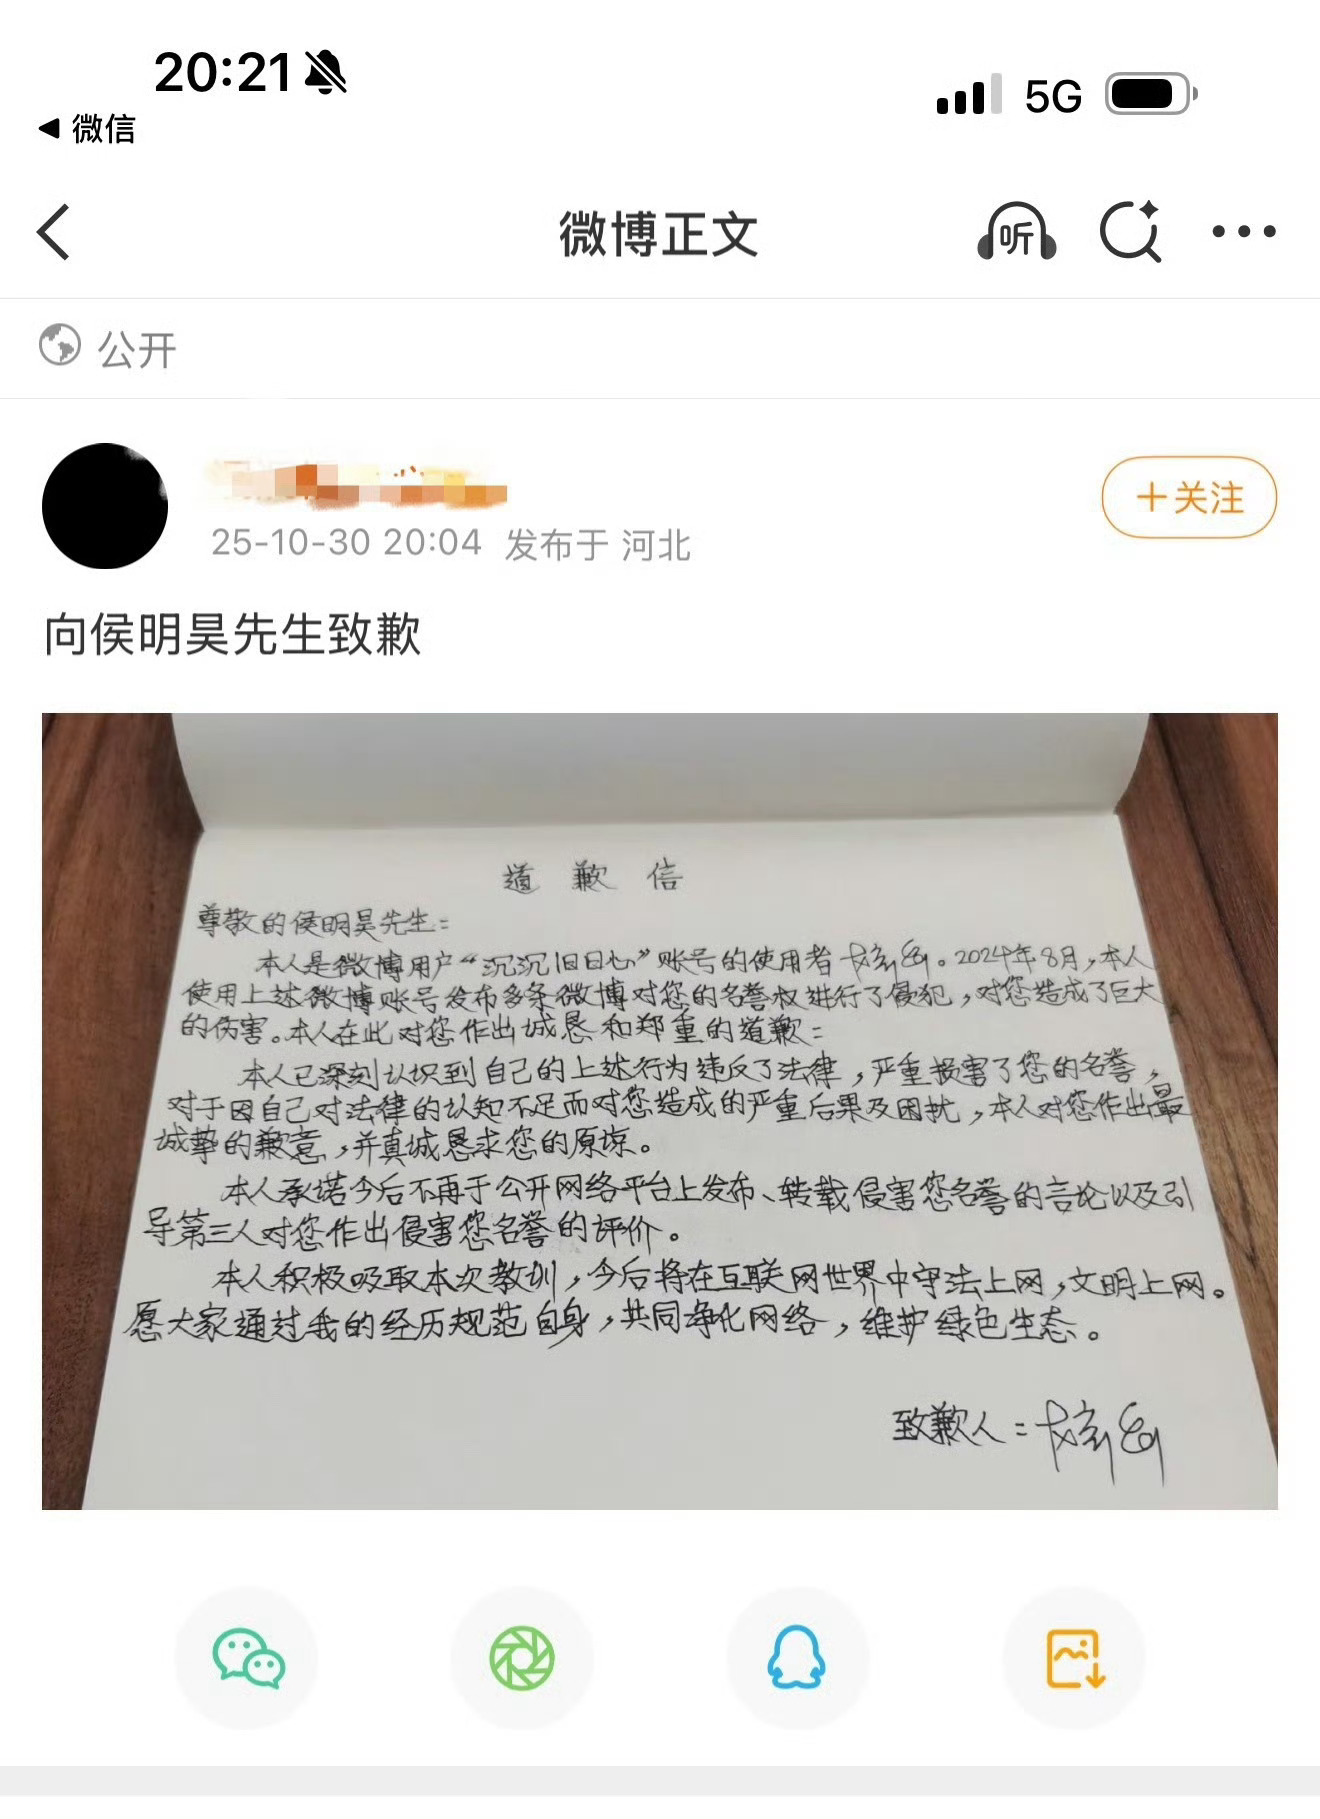 20:21
微信
5G
微博正文
听
公开
25-10-30 20:04 发布于 河北
+关注
向侯明昊先生致歉
道歉信
尊敬的侯明昊先生:
本人是微博用户“沉沉旧日心”账号的使用者。2024年8月,本人
使用上述微博账号发布多条微博对您的名誉权进行了侵犯,对您造成了巨大
的伤害。本人在此对您作出诚恳和郑重的道歉:
本人已深刻认识到自己的上述行为违反了法律,严重损害了您的名誉,
对于因自己对法律的认知不足而对您造成的严重后果及困扰,本人对您作出最
诚挚的歉意,并真诚恳求您的原谅。
本人承诺今后不再于公开网络平台上发布、转载侵害您名誉的言论以及引
导第三人对您作出侵害您名誉的评价。
本人积极吸取本次教训,今后将在互联网世界中守法上网,文明上网。
愿大家通过我的经历规范自身,共同净化网络,维护绿色生态。
致歉人: